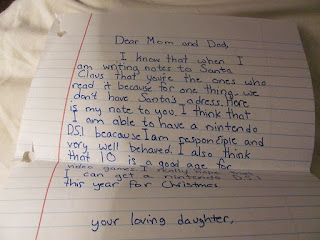 Dear Mom and Dad,
I know that when I
am writing notes to Santa
Claus that you're the ones who
read it because for one thing, we
don't have Santa's adress. Here
is my note to you. I think that
I am able to have a nintendo
DSI beacause I am responsiple and
very well behaved. I also think
that 10 is a good age for
video games. I really hope
I can get a nintendo DSI
this year for Christmas
your loving daughter,